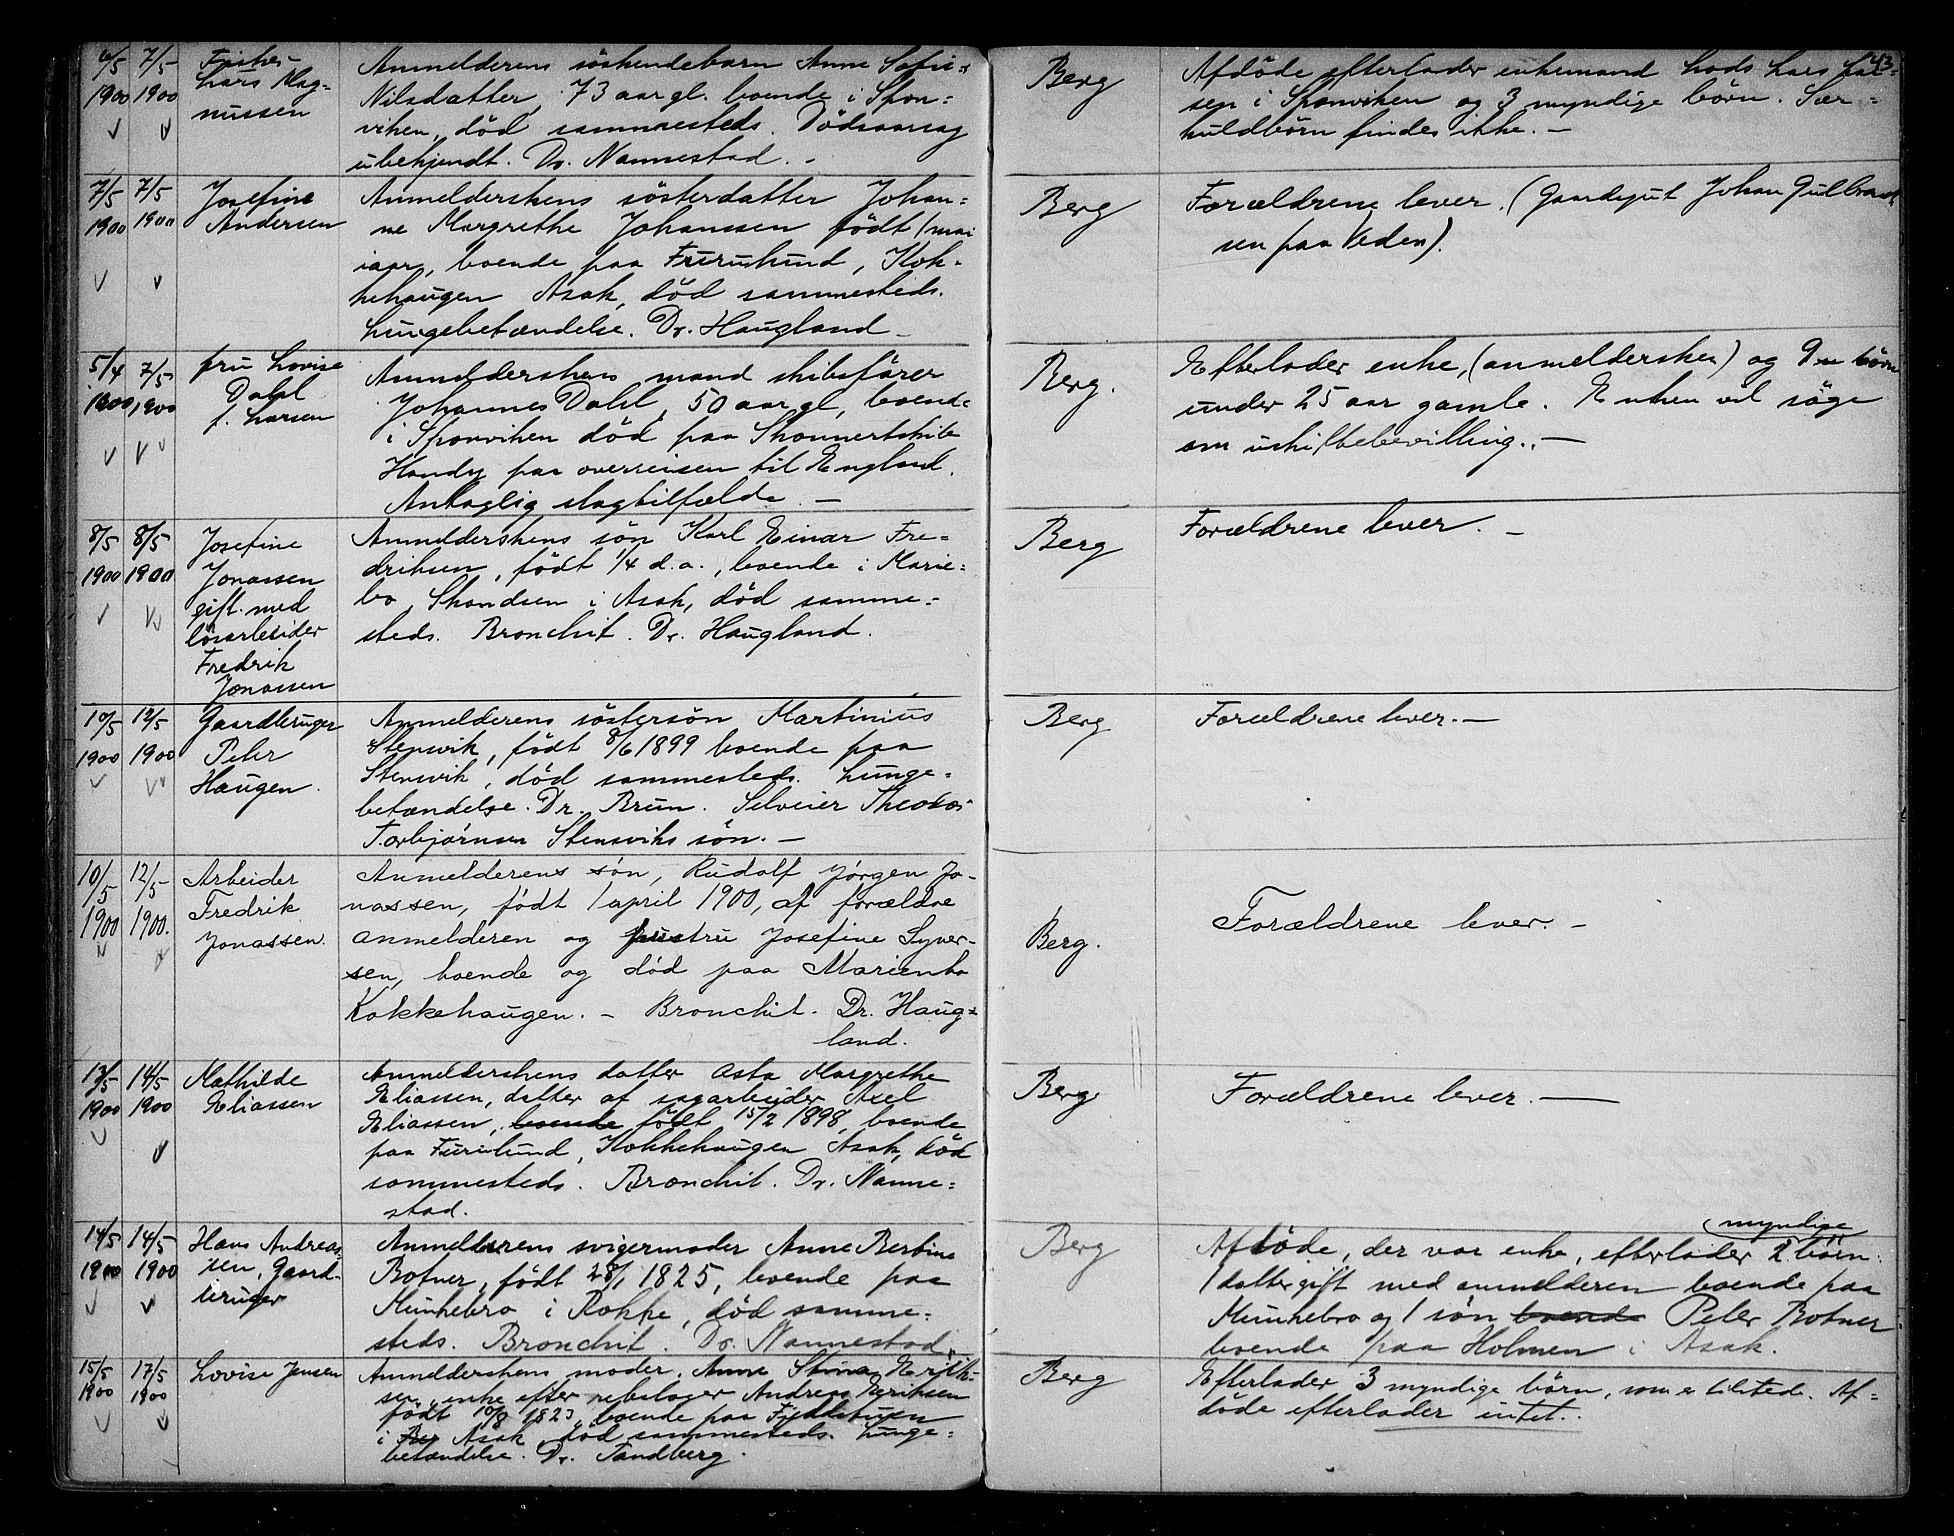 6/5 7/5
1900 1900
Fisker
Lars Mag-
nussen
Anmelderens söskendebarn Anne Sofie
Nilsdatter, 73 aar gl. boende i Spon-
viken, död sammesteds. Dödsaarsag
ubekjendt. Dr. Nannestad. -
Berg
Afdöde efterlader enkemand Lars
sen i Sponviken og 3 myndige börn. Sær-
kuldbörn findes ikke. -
43
7/5 7/5
1900 1900
Josefine
Andersen
Anmelderskens sösterdatter Johan-
ne Margrethe Johanssen födt 1 mai
iaar, boende paa Furulund, Kok-
kehaugen Asak, död sammesteds.
Lungebetændelse. Dr. Haugland -
Berg
Forældrene lever. (Gaardsgut Johan Gulbrand
sen paa Veden).
5/4 7/5
1900 1900
fru Lovise
Dahl
f. Larsen
Anmelderskens mand skibsförer
Johannes Dahl, 50 aar gl, boende
i Sponviken död paa Skonnertskib
Handy paa overreisen til England.
Antaglig slagtilfælde. -
Berg.
Efterlader enke, (anmeldersken) og 9 börn
under 25 aar gamle. Enken vil söge
om uskiftebevilling. -
8/5 8/5
1900 1900
Josefine
Jonassen
gift med
lösarbeider
Fredrik
Jonassen
Anmelderskens sön Karl Einar Fre-
driksen, födt 1/4 d.a., boende i Marie-
bo, Skandsen i Asak, död samme-
steds. Bronchit. Dr. Haugland.
Berg
Forældrene lever. -
10/5 12/5
1900 1900
Gaardbruger
Peter
Haugen.
Anmelderens söstersön Martinius
Stensvik, födt 8/6 1899 boende paa
Stensvik, död sammesteds. Lunge-
betændelse. Dr. Brun. Selveier Theodor
Torbjørnsen Stensviks sön. -
Berg
Forældrene lever. -
10/5 12/5
1900 1900.
Arbeider
Fredrik
Jonassen.
Anmelderens søn, Rudolf Jørgen Jo-
nassen, født 1 april 1900, af forældre
anmelderen og hustru Josefine Syver-
sen, boende og død paa Marienbo
Kokkehaugen. - Bronchit. Dr. Haug-
land.
Berg.
Forældrene lever. -
13/5 14/5
1900 1900
Mathilde
Eliassen
Anmelderskens datter Asta Margrethe
Eliassen, datter af sagarbeider Axel
Eliassen, boende födt 15/2 1898, boende
paa Furulund, Kokkehaugen Asak, död
sammesteds. Bronchit. Dr. Nanne-
stad.
Berg
Forældrene lever. -
14/5 14/5
1900 1900
Hans Andreas-
sen, Gaard-
bruger
Anmelderens svigermoder Anne Bertine
Botner, födt 28/1 1825, boende paa
Munkebro i Rokke, död samme-
steds. Bronchit. Dr. Nannestad.
Berg
myndige
Afdöde, der var enke, efterlader 2 börn.
1 datter gift med anmelderen boende paa
Munkebro og 1 sön boende Peter Botner
boende paa Holmen i Asak.
15/5 17/5
1900 1900
Lovise Jensen
Anmelderskens moder Anne Stina Erik-
sen, enke efter rebslager Andreas Eriksen
födt 10/8 1823, boende paa Fjeldstuen
i Ber Asak, död sammesteds. Lunge-
betændelse. Dr. Tandberg.
Berg
Efterlader 3 myndige börn, som er tilsted. Af-
döde efterlader intet.